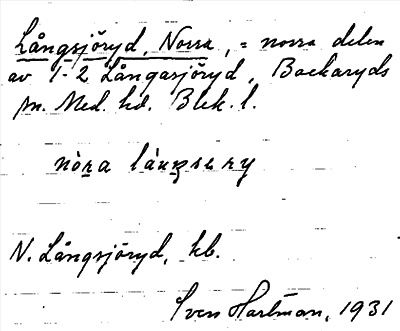 Långsjöryd, Norra, = norra delen
av 1-2 Långasjöryd, Backaryds
sn. Med. hd. Blek. l.
N. Långsjöryd, kb.
Sven Hartman, 1931